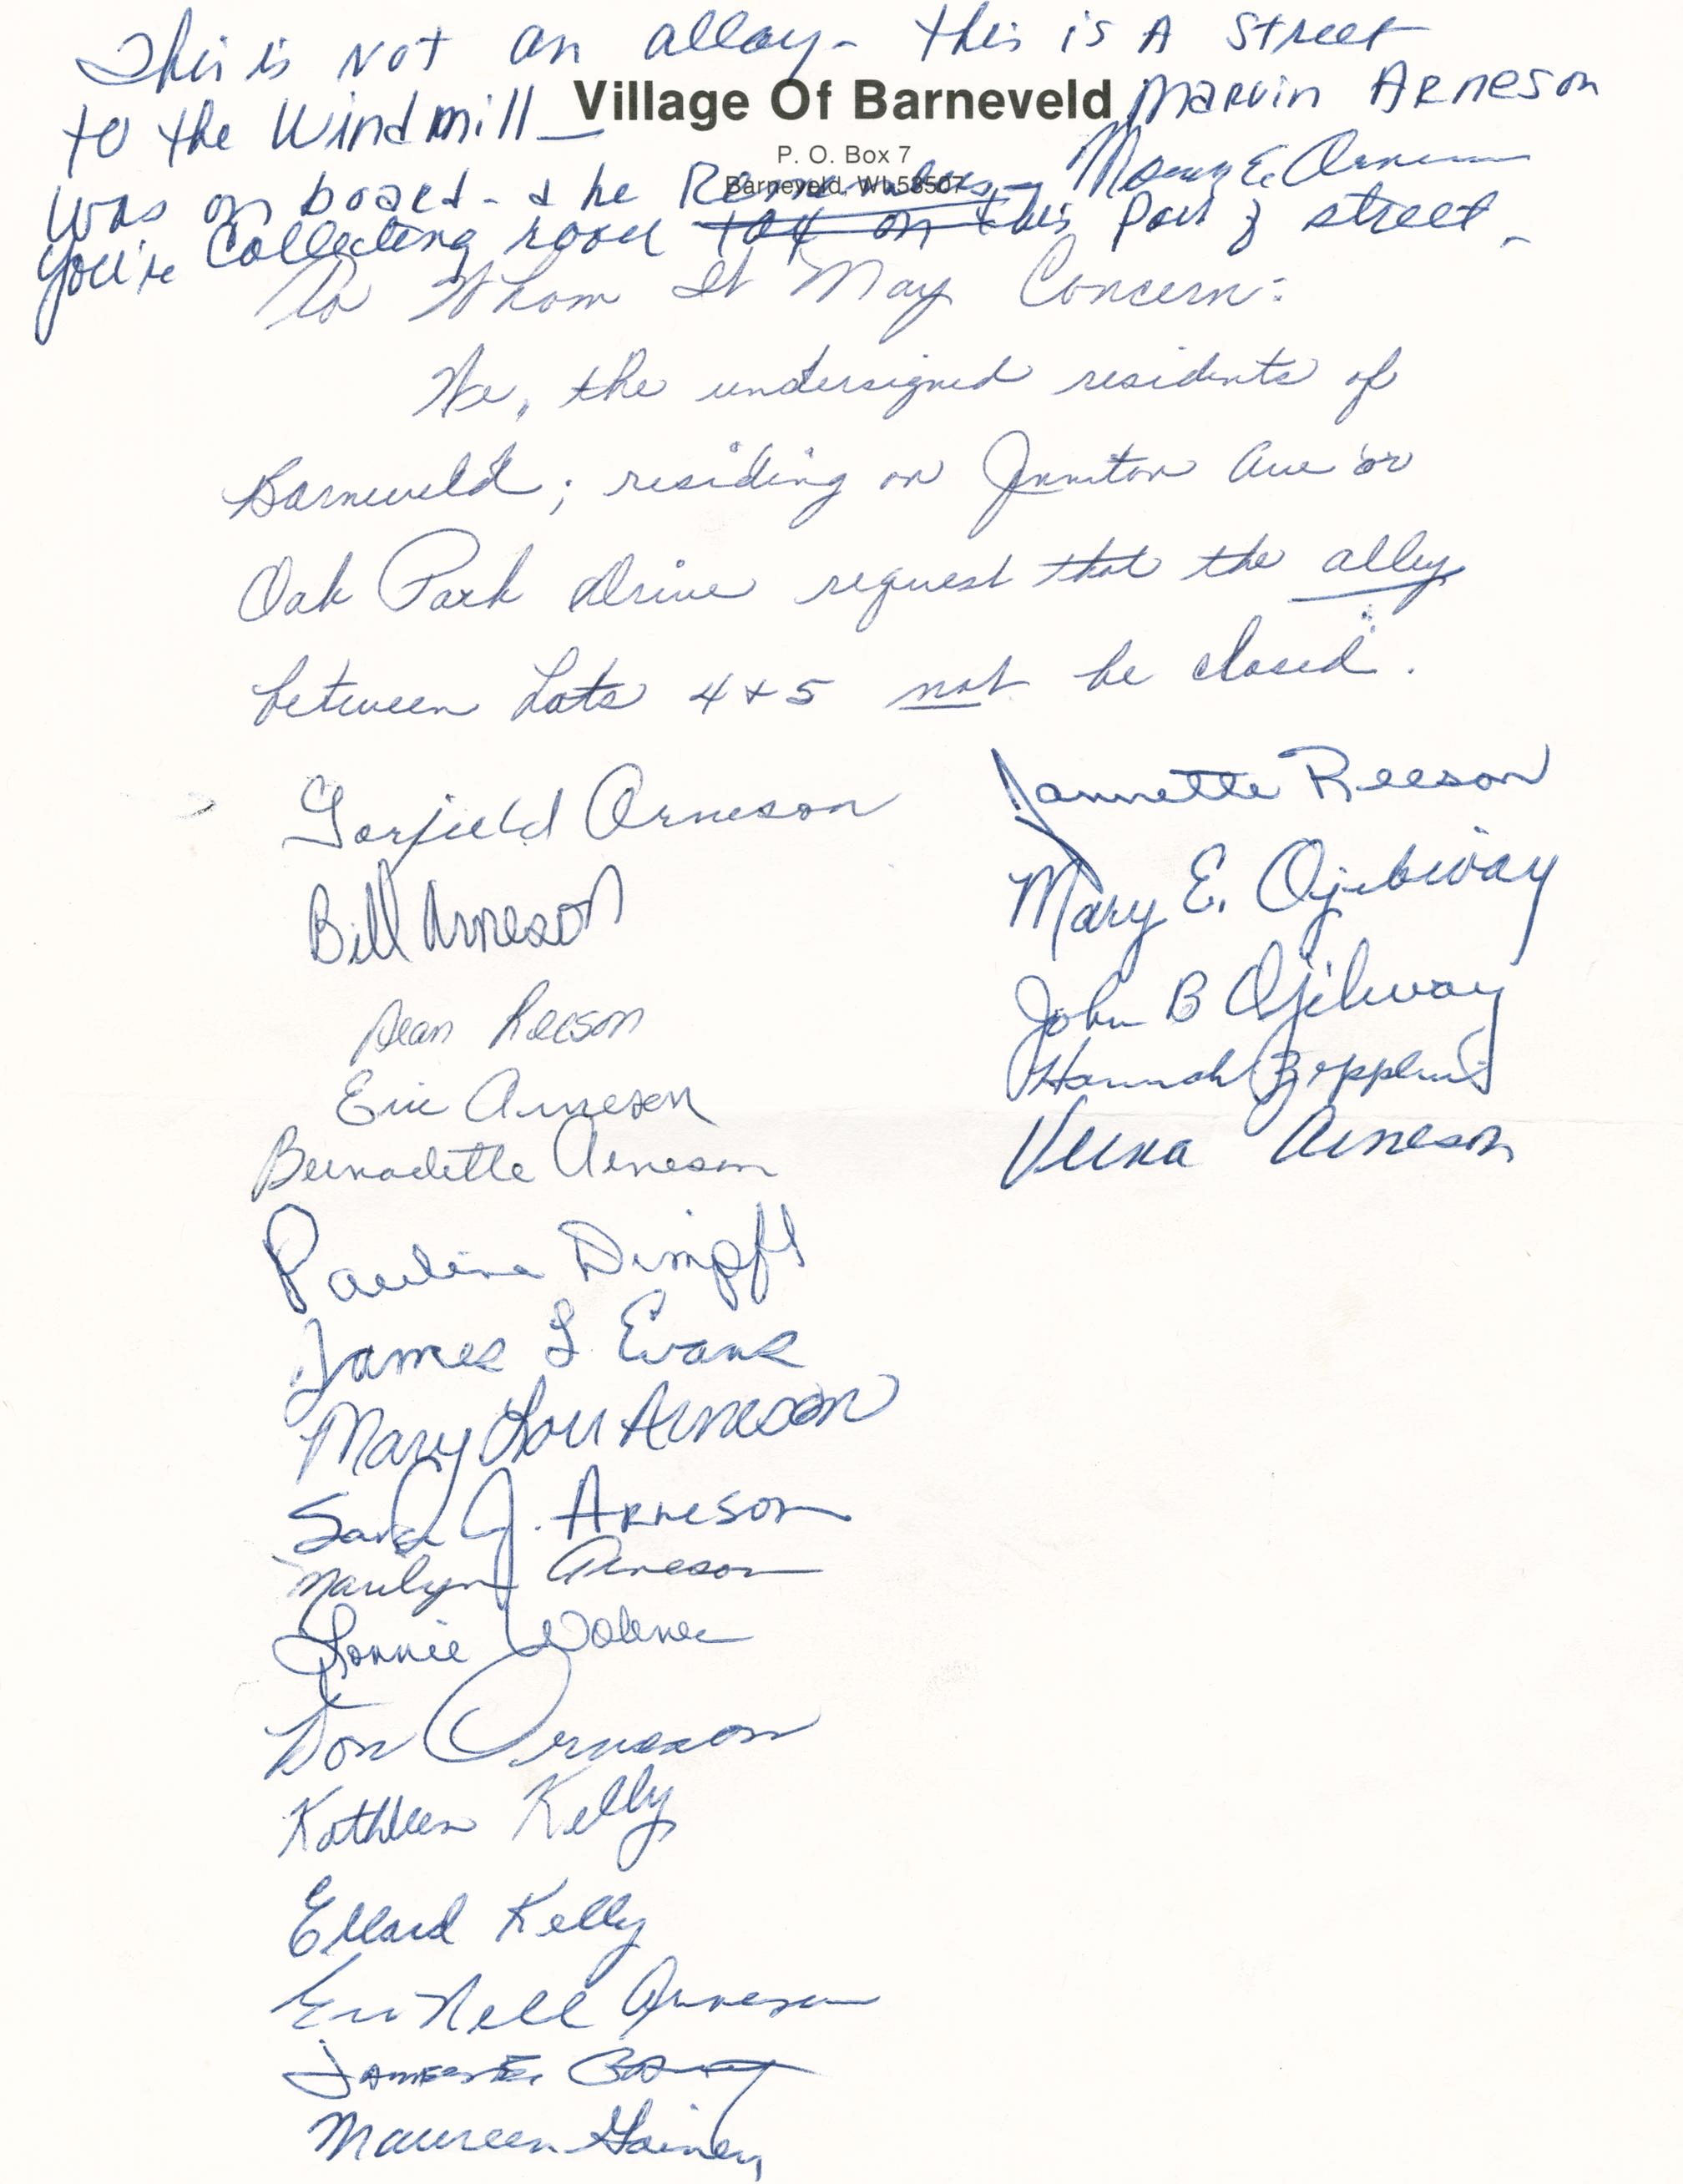 This is Not an alloy - this is A Street
to the Windmill - Village Of Barneveld Marvin Arneson
P. O. Box 7
Barneveld, WI 53507
was on board - & he Remembers - Mary E. Arneson
You're Collecting road tax on this Part of street -
To Whom It May Concern:
We, the undersigned residents of
Barneveld; residing on Ave or
Oak Park Drive request that the alley
between Lots 4 + 5 not be closed.
Garfield Arneson
Bill Arneson
Dean Reeson
Eric Arneson
Bernadette Arneson
Pauline Dimpfl
James L Evans
Mary Lou Arneson
Sara J. Arneson
Marilyn Arneson
Lonnie
Don Arneson
Kathleen Kelly
Ellard Kelly
Nell Arneson
James E.
Maureen Gainey
Jannette Reeson
Mary E. Ojibway
John B Ojibway
Hannah
Verna Arneson